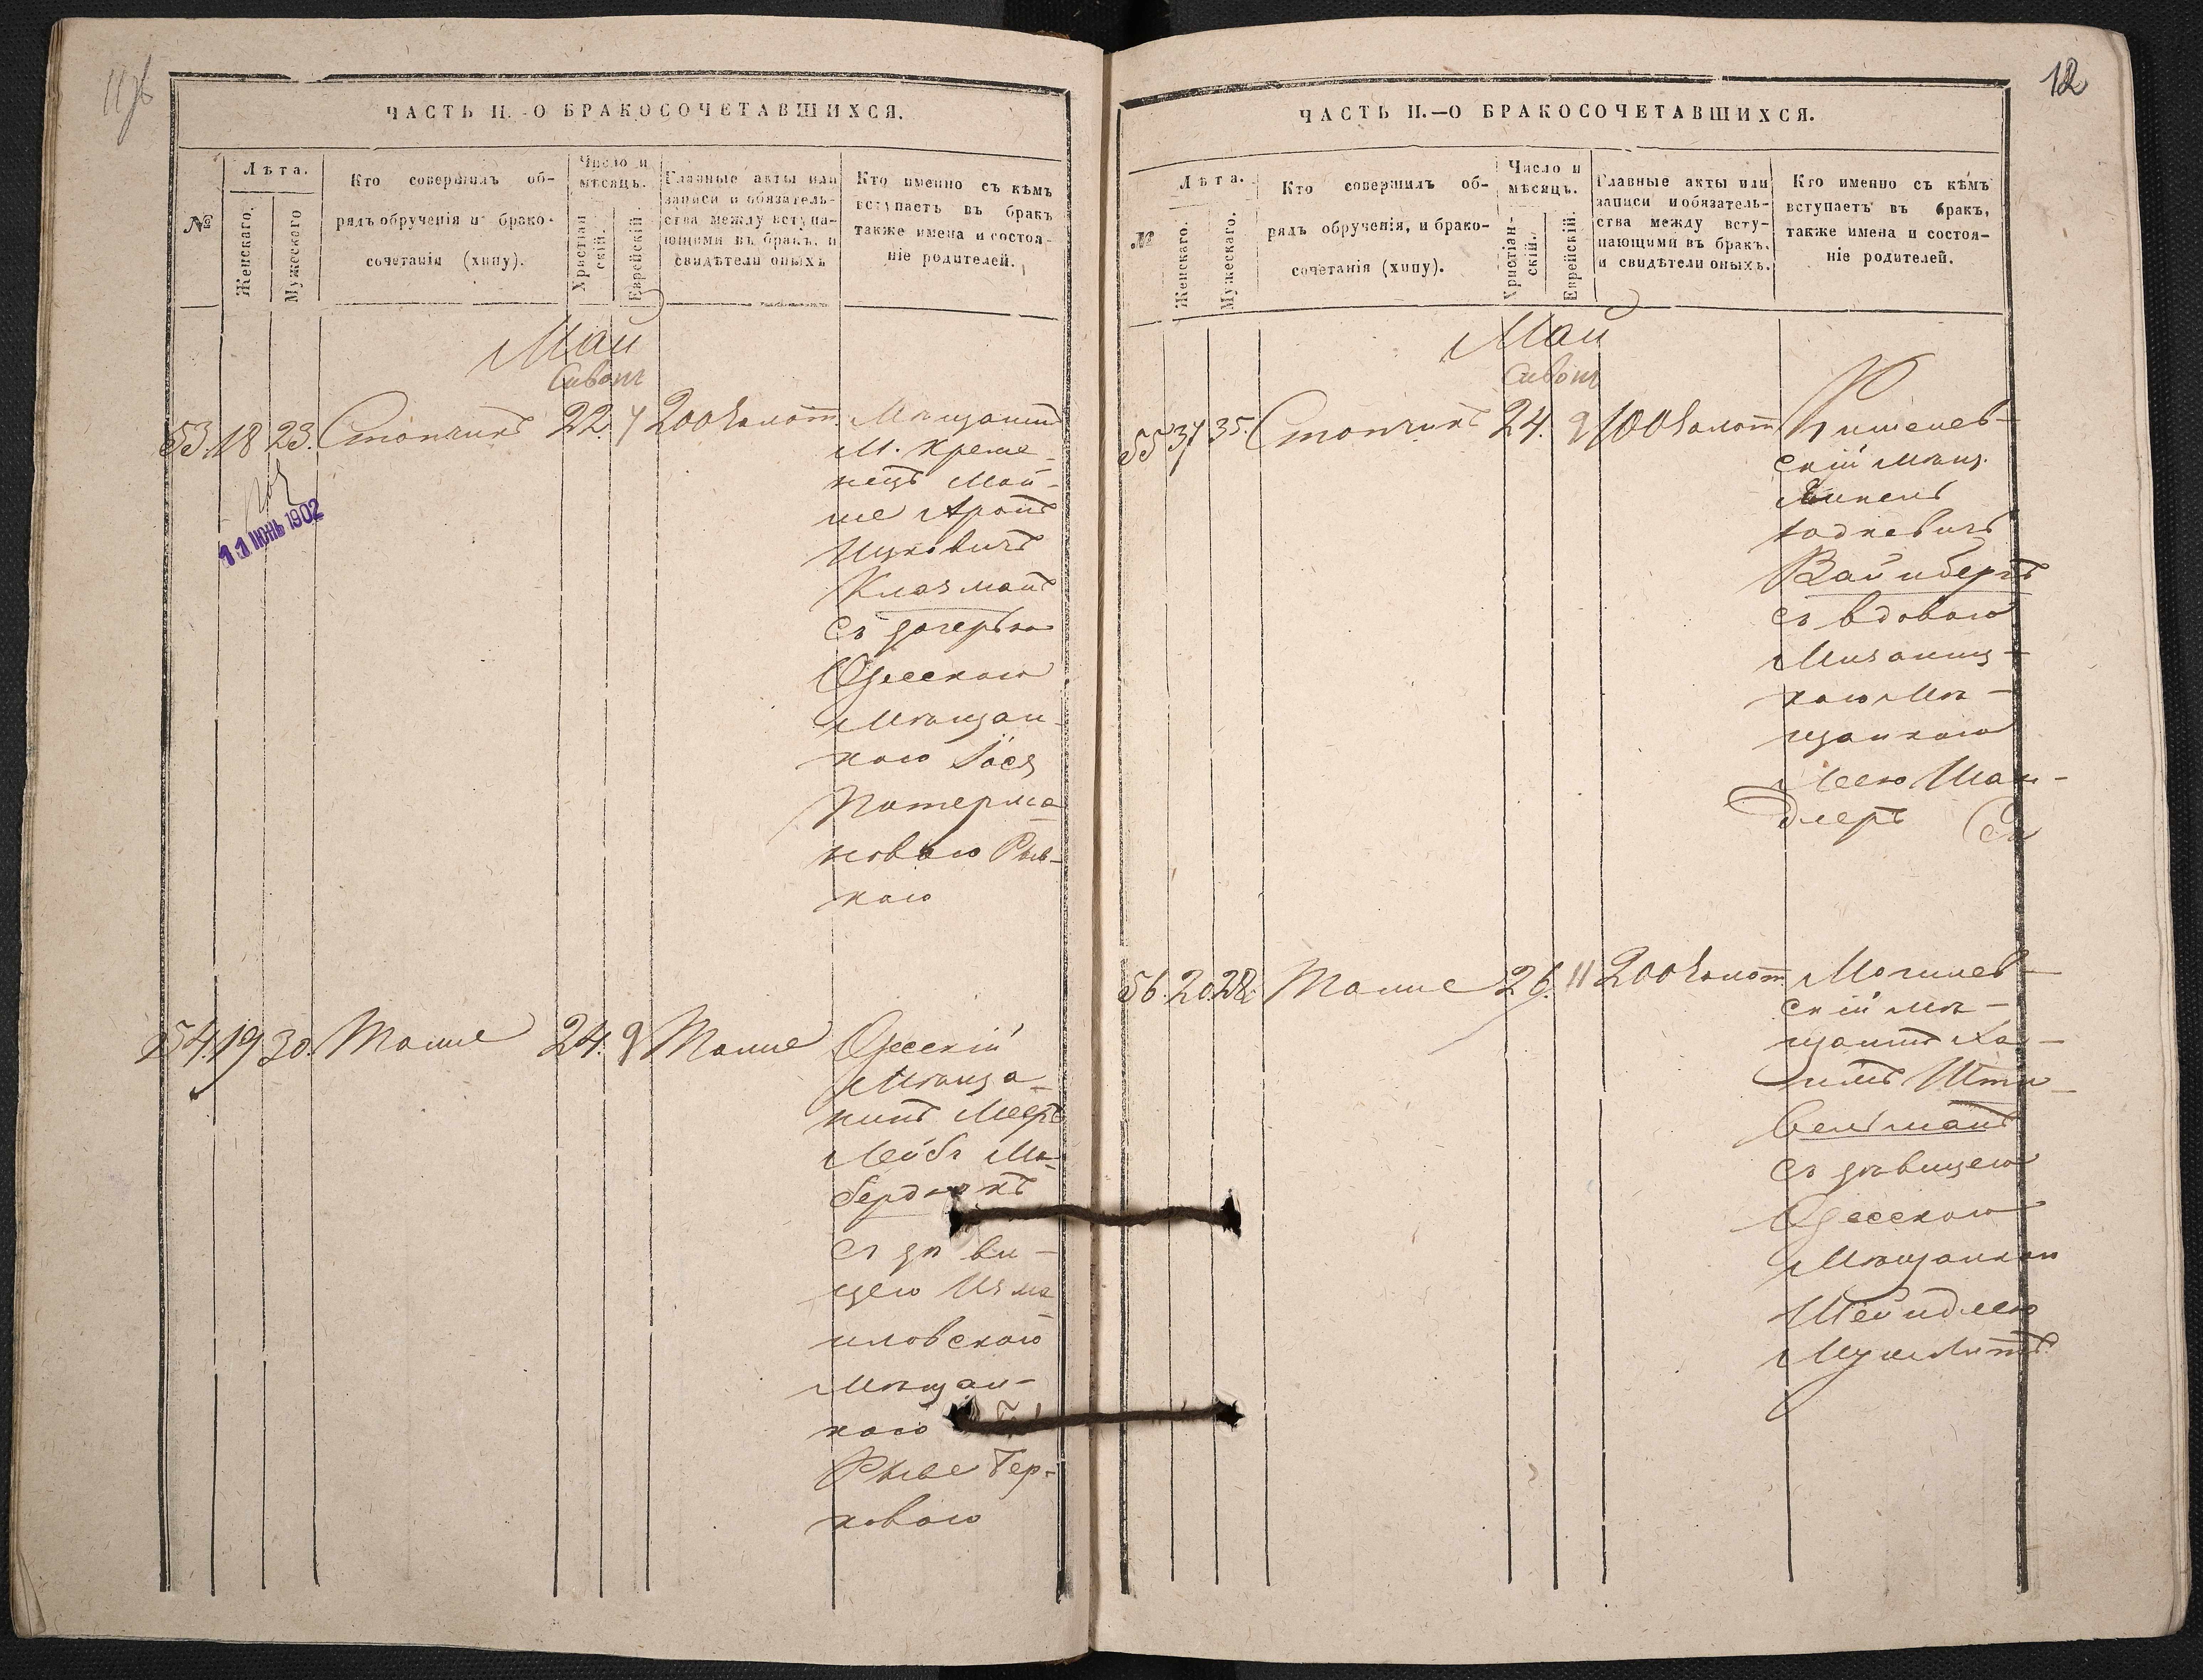 ЧАСТЬ II.-О БРАКОСОЧЕТАВШИХСЯ.
№
Лѣта.
Женскаго.
Мужескаго
Кто совершилъ об-
рядъ обрученія и брако-
сочетанія (хипу).
Число и
мѣсяцъ.
Христіан
скій.
Еврейскій.
Главные акты или
записи и обязатель-
ства между вступа-
ющими въ бракъ, и
свидѣтели оныхъ
Кто именно съ кѣмъ
вступаетъ въ бракъ
также имена и состоя-
ніе родителей.
Май
Сивонъ
53. 18 23. 22. 200 золот. Мѣщанинъ
М. Креме-
нецъ Мой-
ше Аронъ
Ицковичъ
Клазманъ
съ дочерью
Одесскою
Мѣщан-
кою Іося
Потерма-
новою Рыв-
кою
11 ІЮНЬ 1902
54. 19 30. Тоже 24. 9 Тоже Одесскій
Мѣща-
нинъ Мееръ
Лейбъ
съ дѣви-
цею Изма
иловскою
Мѣщан-
кою
Рывe Гер-
ковою
12
ЧАСТЬ II.—О БРАКОСОЧЕТАВШИХСЯ.
№
Лѣта.
Женскаго.
Мужескаго.
Кто совершилъ об-
рядъ обрученія, и брако-
сочетанія (хипу).
Число и
мѣсяцъ.
Христіан-
скій.
Еврейскій.
Главные акты или
записи и обязатель-
ства между всту-
пающими въ бракъ.
и свидѣтели оныхъ.
Кто именно съ кѣмъ
вступаетъ въ бракъ,
также имена и состоя-
ніе родителей.
Май
Сивонъ
55 37 35. 24. 9 100 золот Кишенев-
скій Мѣщ.
Юдкевичъ
Вайнбергъ
съ вдовою
кою Мѣ-
щанкою
Леею Шан-
длеръ
56. 20. 28. Тоже 26. 11 200 золот. Могилев-
скій мѣ-
щанинъ Ха-
имъ
съ дѣвицею
Одесскою
Мѣщанкою
Шейндлею